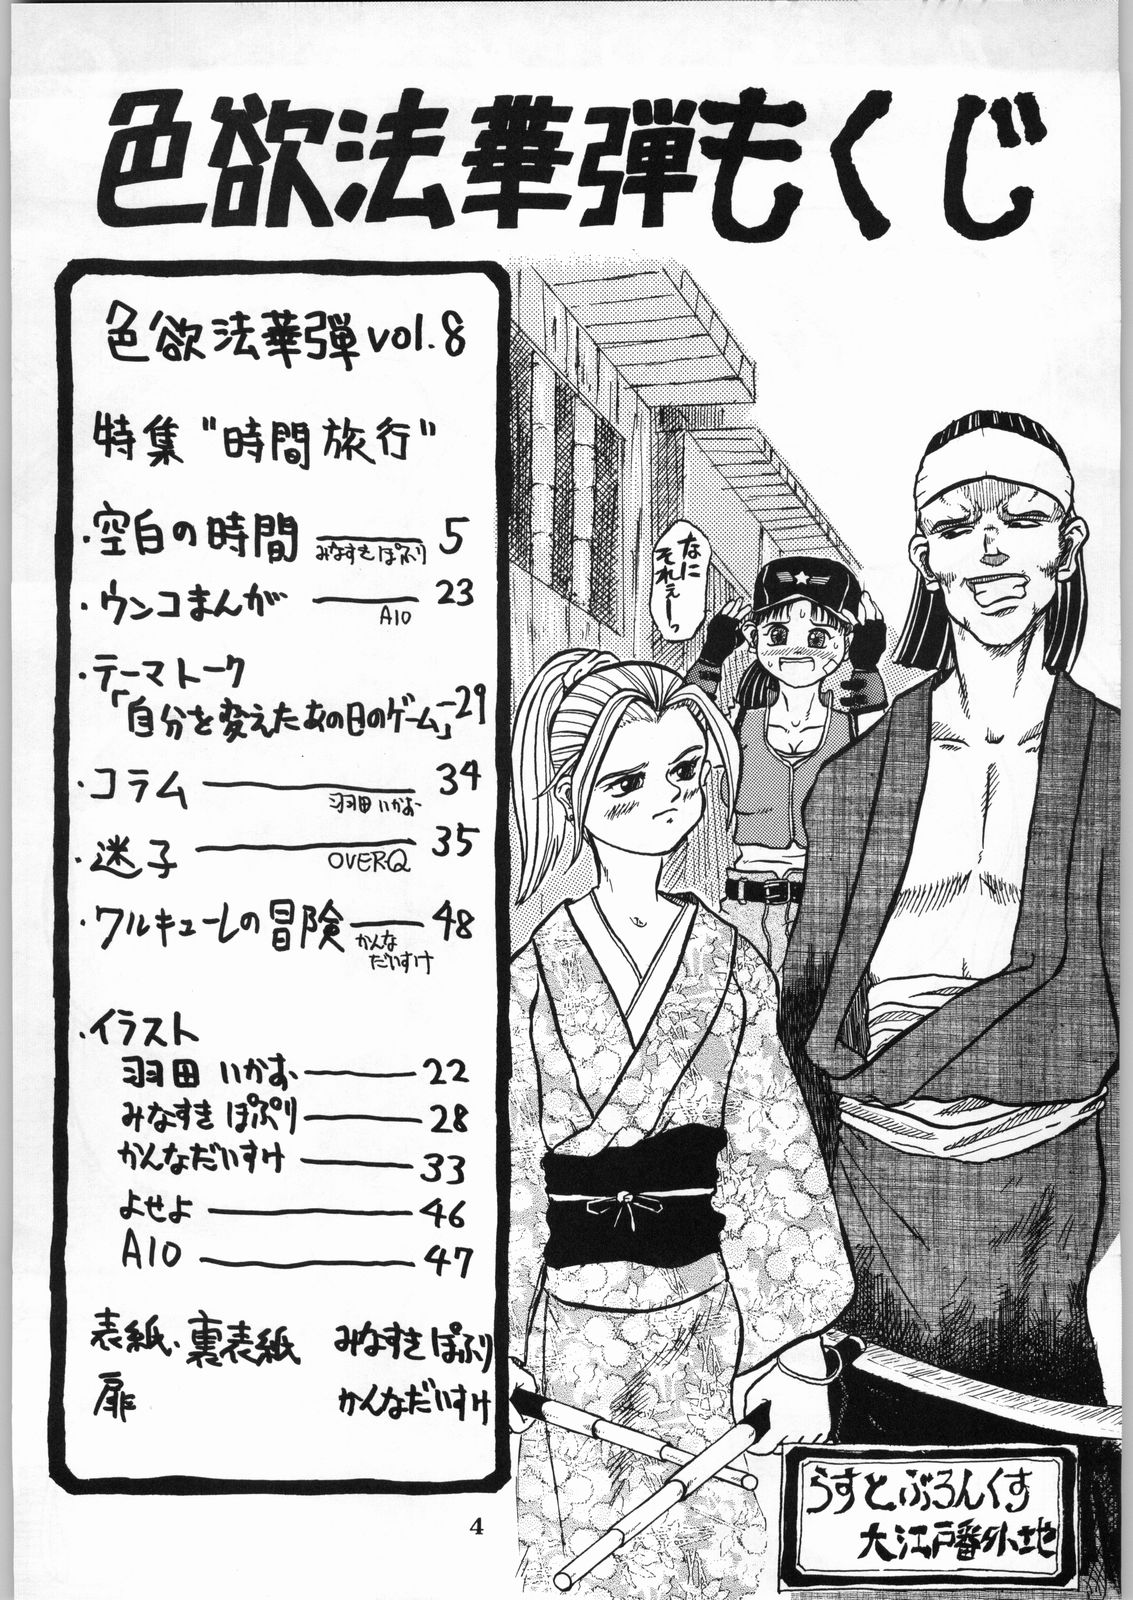 色欲法華弾もくじ
色欲法華弾vol.8
特集"時間旅行"
・空白の時間 5
みなすきぽぷり
・ウンコまんが 23
A10
・テーマトーク
「自分を変えたあの日のゲーム」 29
・コラム 34
羽田いかお
・迷子 35
OVERQ
・ワルキューレの冒険 48
かんな
だいすけ
・イラスト
羽田いかお 22
みなすきぽぷり 28
かんなだいすけ 33
よせよ 46
A10 47
表紙、裏表紙 みなすきぽぷり
扉 かんなだいすけ
なに
それぇーっ
らすとぶろんくす
大江戸番外地
4